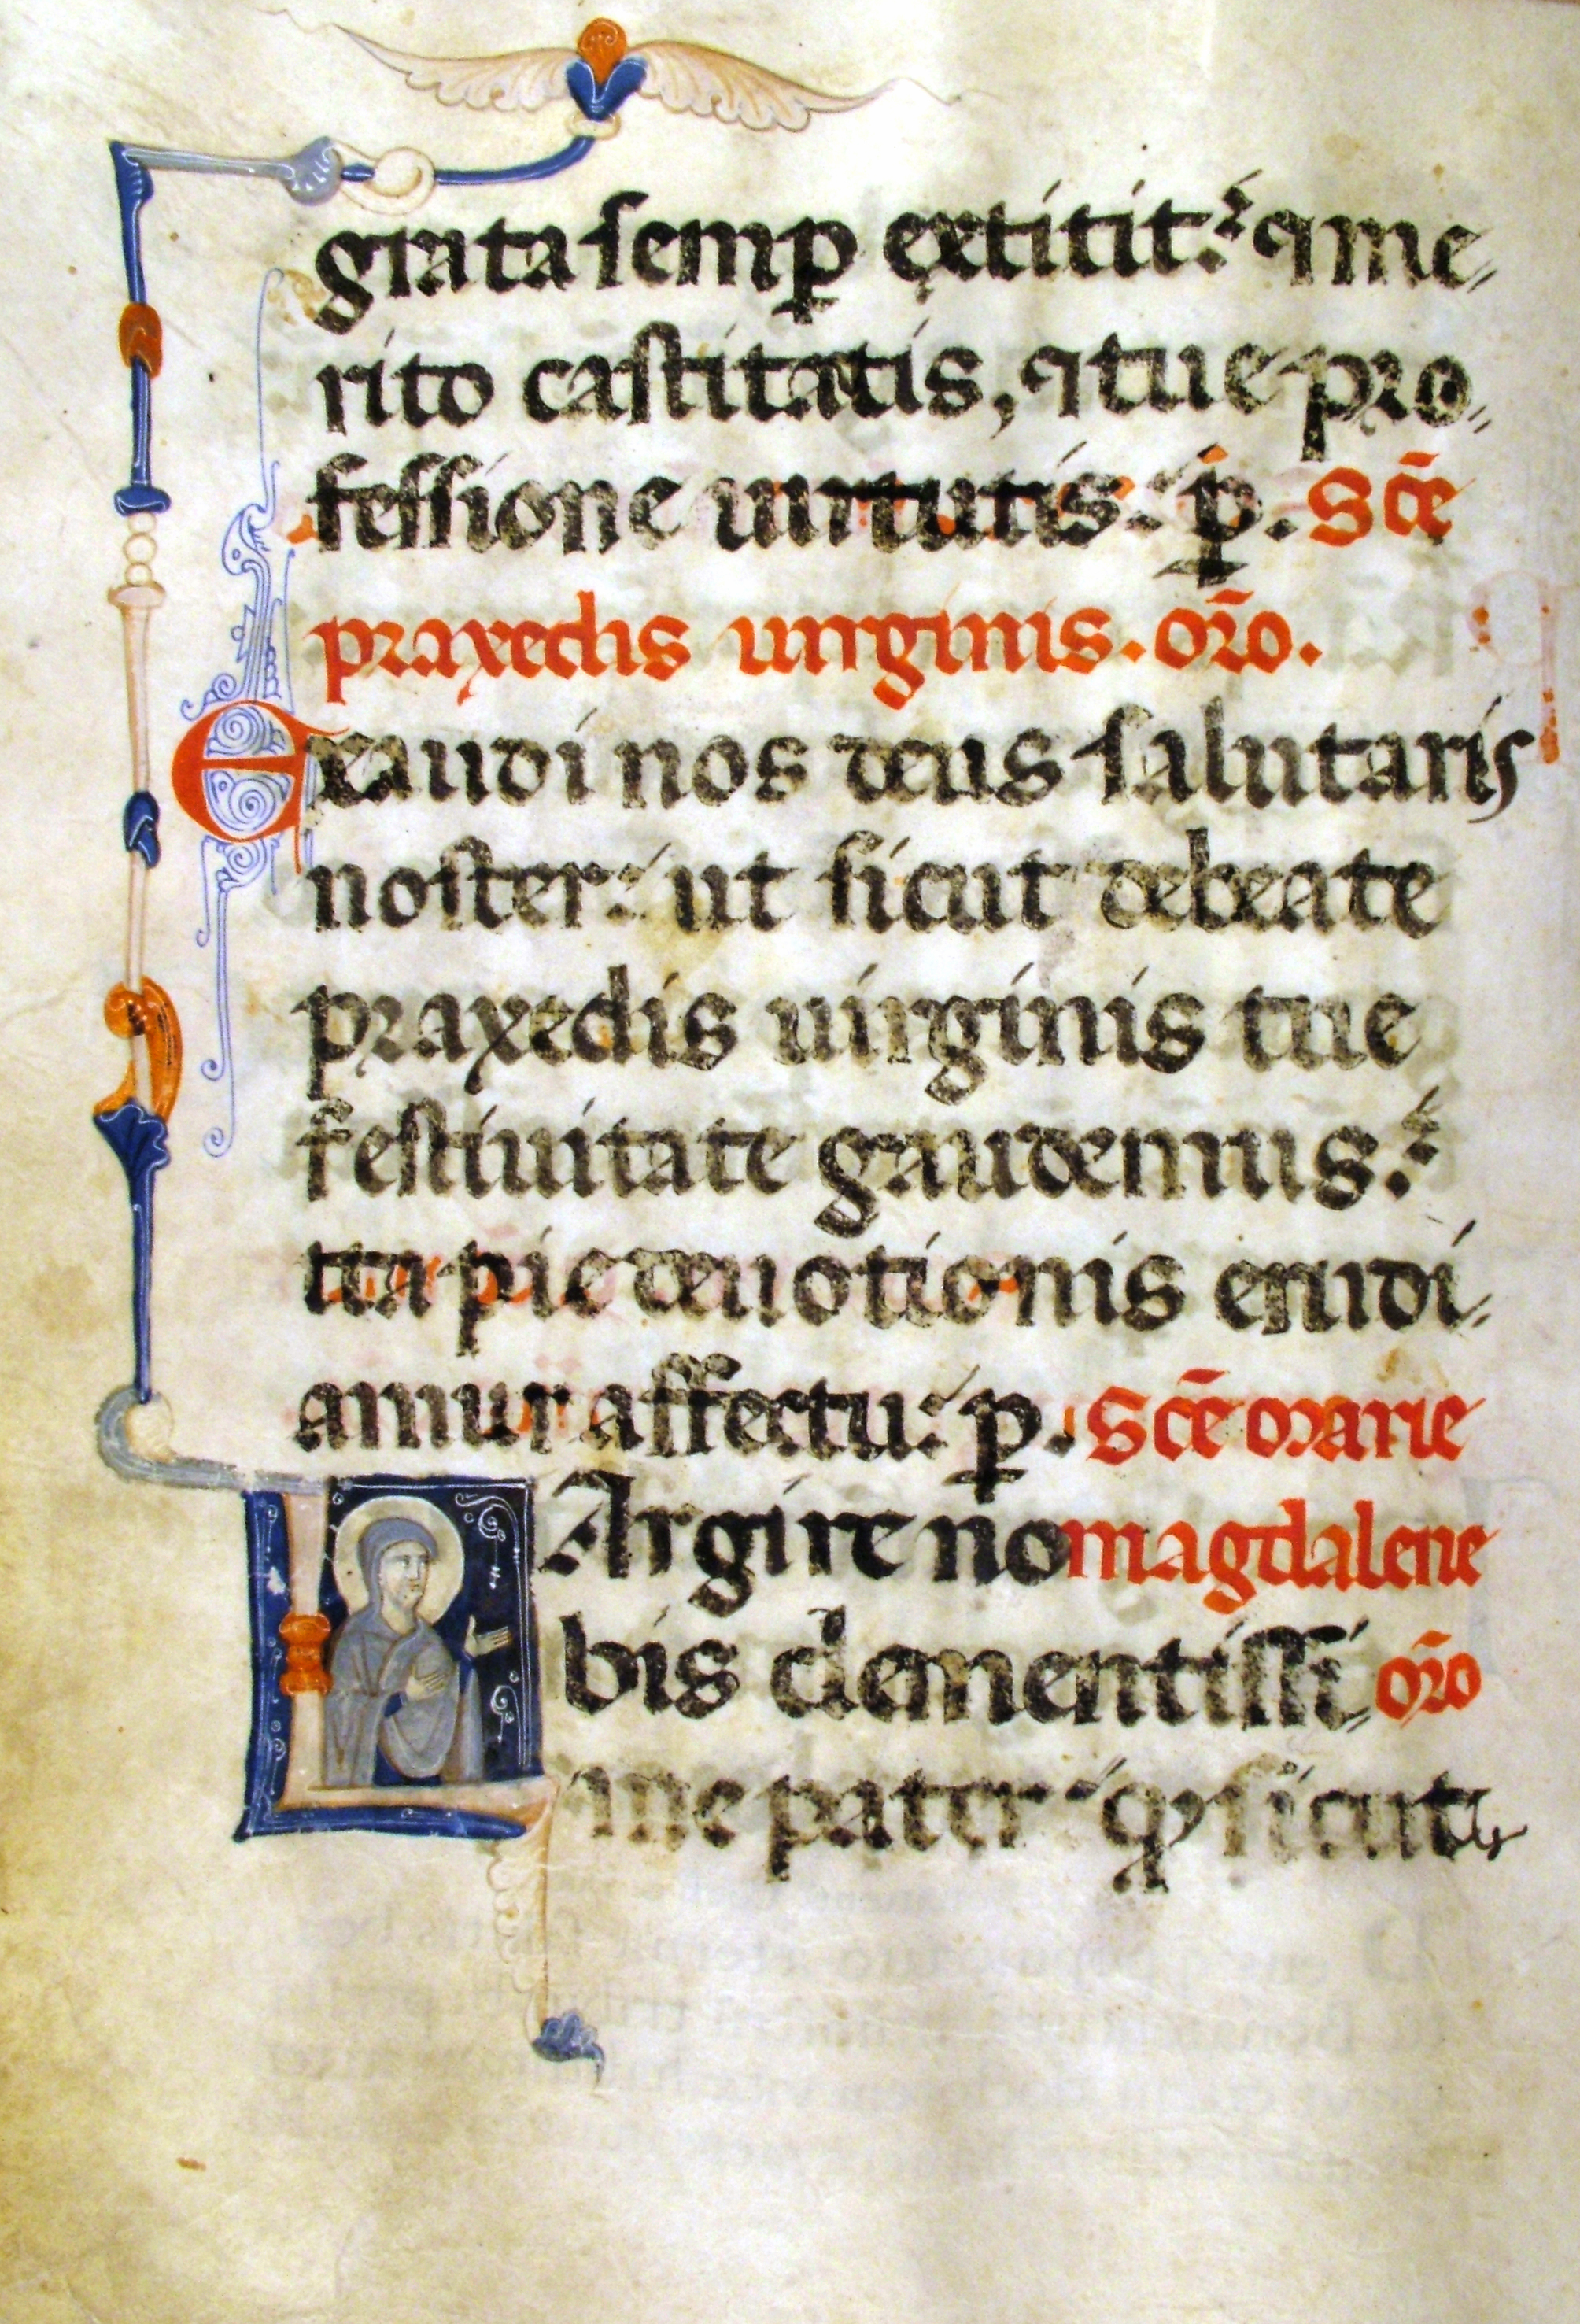 grata semꝑ extitit: ⁊ me
rito castitatis, ⁊ tue pro
fessione uirtutis: p̄. Sc̄e
praxedis uirginis. or̄o.
Exaudi nos deus salutaris
noster: ut sicut de beate
praxedis uirginis tue
festiuitate gaudemus:
ita pie deuotionis erudi
amur affectu: p. Sc̄e marie
LArgire no magdalene
bis clementissi or̄o
me pater: ꝙ sicut